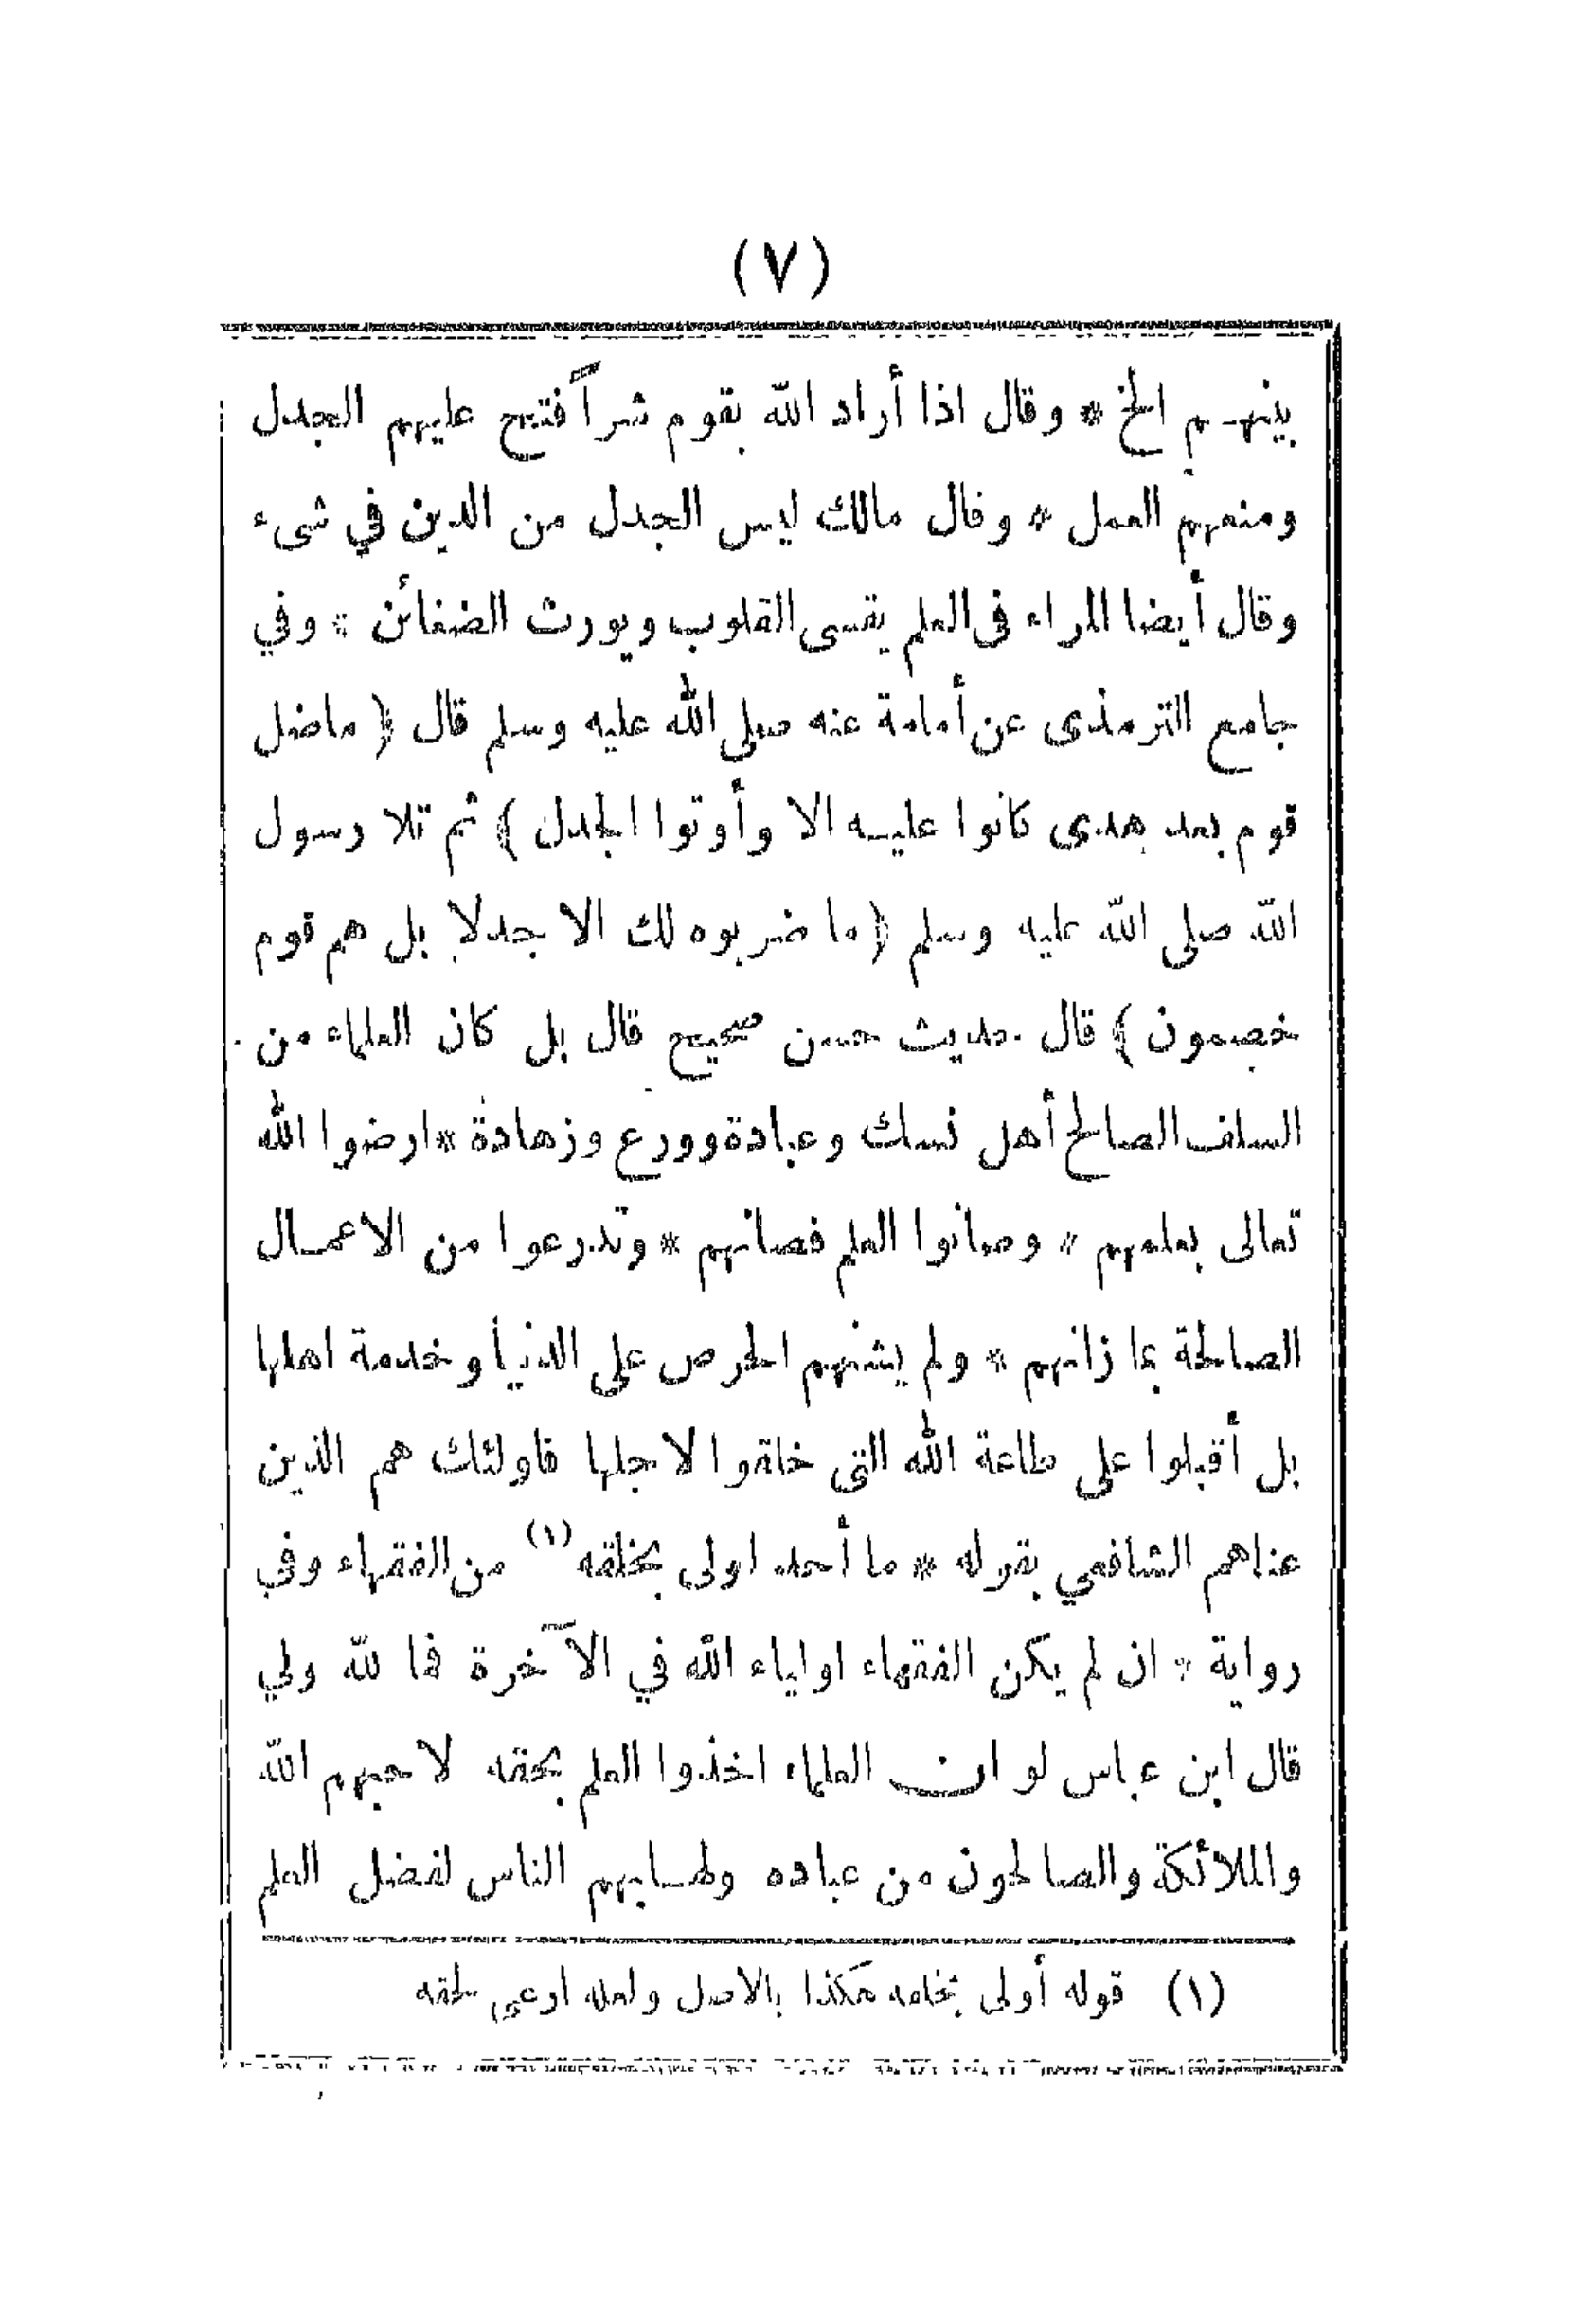 (٧)
بينهم الخ * وقال اذا أراد الله بقوم شراً فتح عليهم الجدل
ومنعهم العمل * وقال مالك ليس الجدل من الدين في شىء
وقال أيضا المراء فى العلم يقسى القلوب ويورث الضغائن * وفي
جامع الترمذى عن أمامة عنه صلى الله عليه وسلم قال ﴿ ماضل
قوم بعد هدى كانوا عليه الا وأوتوا الجدل ﴾ ثم تلا رسول
الله صلى الله عليه وسلم ﴿ ما ضربوه لك الا جدلا بل هم قوم
خصمون ﴾ قال حديث حسن صحيح قال بل كان العلماء من
السلف الصالح أهل نسك وعبادة وورع وزهادة * ارضوا الله
تعالى بعلمهم * وصانوا العلم فصانهم * وتدرعوا من الاعمال
الصالحة بما زانهم * ولم يشنهم الحرص على الدنيا وخدمة اهلها
بل أقبلوا على طاعة الله التى خلقوا لاجلها فاولئك هم الذين
عناهم الشافعي بقوله * ما أحد اولى بخلقه (١) من الفقهاء وفي
رواية * ان لم يكن الفقهاء اولياء الله في الآخرة فما لله ولي
قال ابن عباس لو ان العلماء اخذوا العلم بحقه لاحبهم الله
والملائكة والصالحون من عباده ولهابهم الناس لفضل العلم
(١) قوله أولى بخلقه هكذا بالاصل ولعله ارعى لحقه